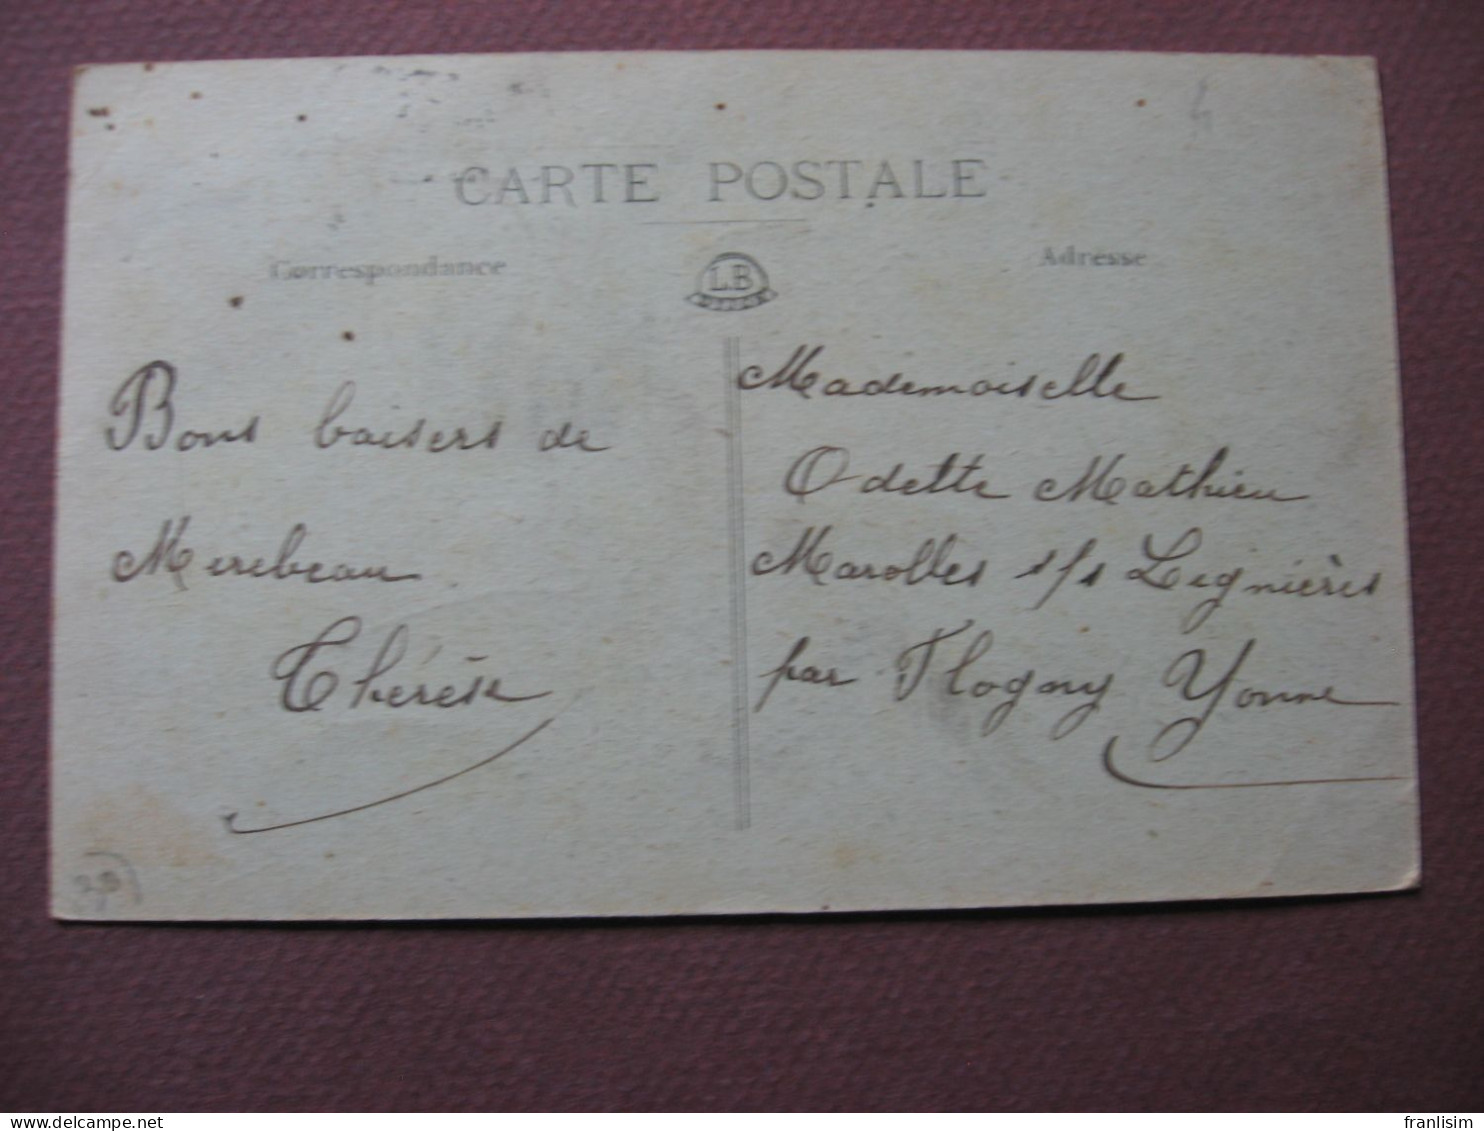 CARTE POSTALE
Correspondance
Adresse
LB
Bons baisers de
Merebeau
Thérèse
Mademoiselle
Odette Mathieu
Marolles s/s Lignières
par Flogny Yonne
franlisim